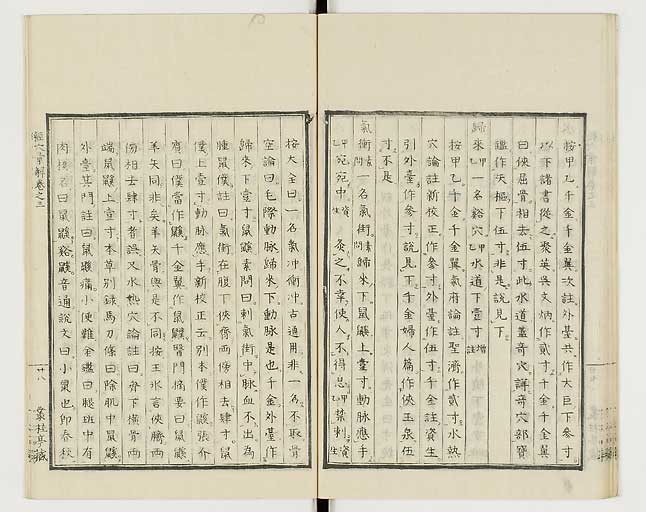 按甲乙千金千金翼次註外臺共作大巨下參寸
以下諸書從之聚英吳文炳作貳寸千金千金翼
曰俠屈骨相去伍寸此水道蓋奇穴詳奇穴部寶
鑑作天樞下伍寸非是說見下
歸來甲乙一名谿穴甲乙水道下壹寸增註
按甲乙千金千金翼氣府論註聖濟作貳寸水熱
穴論註新校正作參寸外臺作伍寸千金註資生
引外臺作參寸說見下千金婦人篇作俠玉泉伍
寸不是
氣衝素問一名氣街素問歸來下鼠鼷上壹寸動脉應手
甲乙宛宛中資生灸之不幸使人不得息甲乙禁刺資生
按大全曰一名氣冲衝冲古通用非一名不取骨
空論曰毛際動脉歸來下動脉是也千金外臺作
歸來下壹寸鼠鼷素問曰刺氣街中脉血不出為
腫鼠僕註曰氣街在腹下俠齊兩傍相去肆寸鼠
僕上壹寸動脉應手新校正云別本僕作鼷張介
賓曰僕當作鼷千金翼作鼠鼷醫門摘要曰鼠鼷
羊矢同非矣羊矢骨與是不同按王冰言俠臍兩
傍相去肆寸者誤又水熱穴論註曰齊下橫骨兩
端鼠鼷上壹寸本草別錄馬刀條曰除肌中鼠鼷
外臺其門註曰鼠鼷痛小便難金鑑曰腿班中有
肉核名曰鼠鼷谿鼷音通說文曰小鼠也即春秋
經穴彙解卷之三
廿八
叢桂亭藏